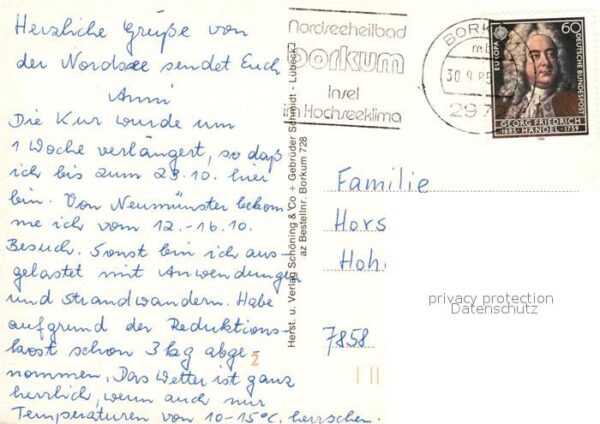 Herzliche Grüße von
der Nordsee sendet Euch
Anni
Die Kur wurde um
1 Woche verlängert, so daß
ich bis zum 23.10. hier
bin. Von Neumünster bekom
me ich vom 12.-16.10.
Besuch. Sonst bin ich aus-
gelastet mit Anwendungen
und Strandwandern. Habe
aufgrund der Reduktions-
kost schon 3 kg abge-
nommen. Das Wetter ist ganz
herrlich, wenn auch nur
Temperaturen von 10-15°C. herrschen.
Nordseeheilbad
borkum
Insel
im Hochseeklima
BORKUM
30.9.85
297
EUROPA
60
DEUTSCHE BUNDESPOST
GEORG FRIEDRICH
1685 HÄNDEL 1759
Herst. u. Verlag Schöning & Co + Gebrüder Schmidt - Lübeck
az Bestellnr. Borkum 728
Familie
Hors
Hoh
7858
privacy protection
Datenschutz
2